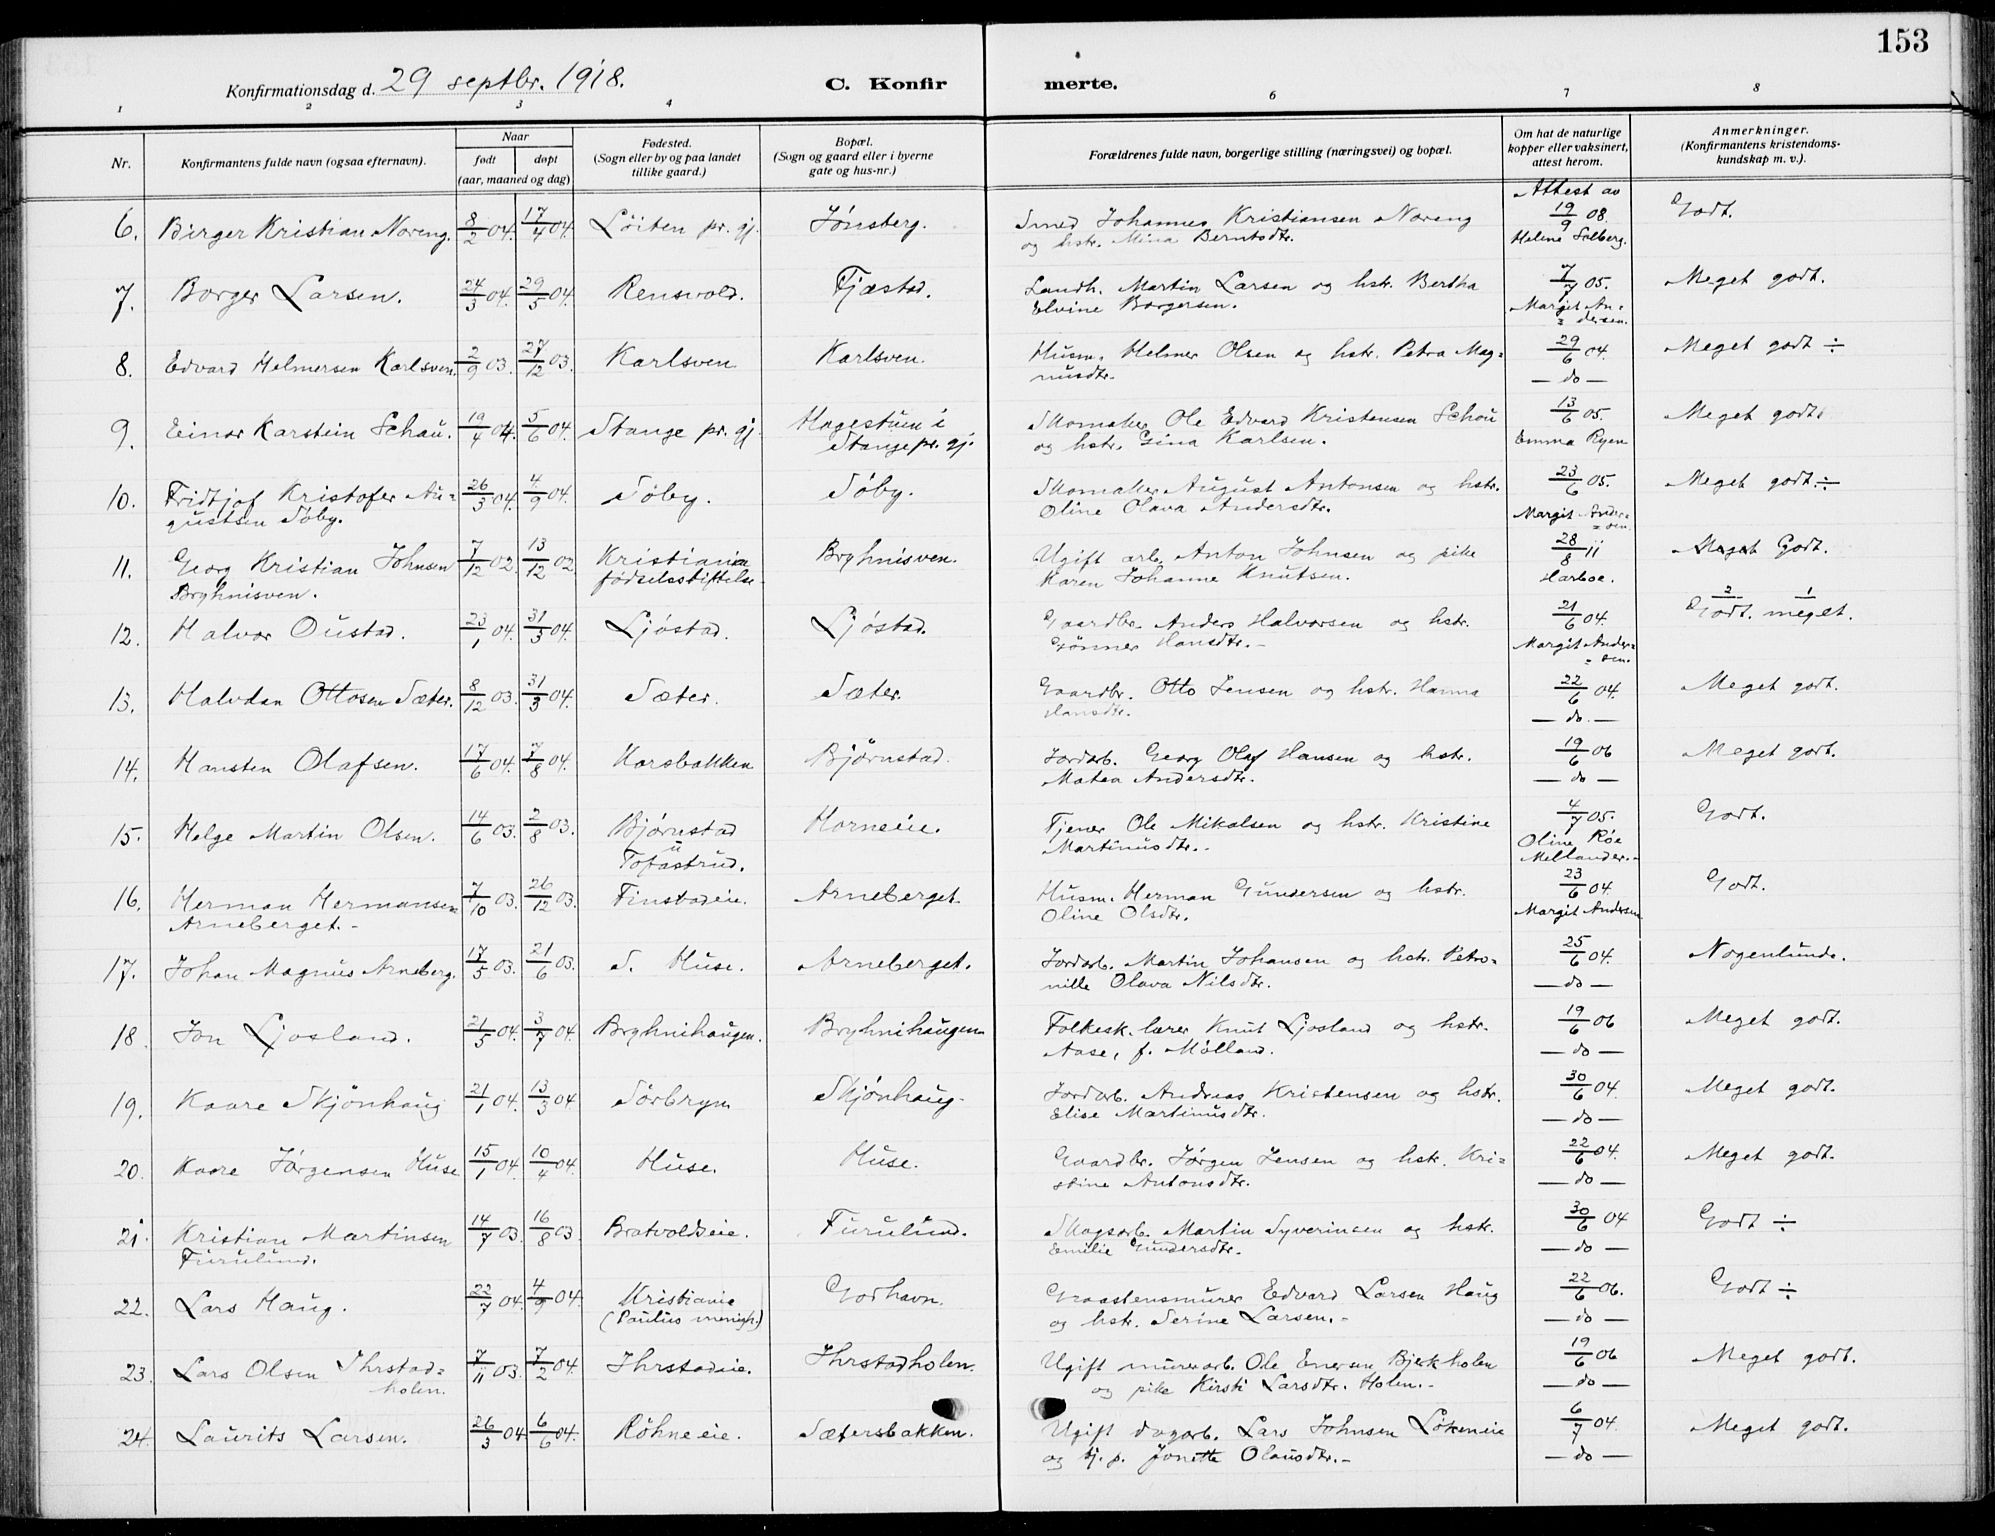 153
Konfirmationsdag d. 29 septbr. 1918.
C. Konfirmerte.
1 2 3 4 6 7 8
Nr.
Konfirmantens fulde navn (ogsaa efternavn).
Naar
født døpt
(aar, maaned og dag)
Fødested.
(Sogn eller by og paa landet
tillike gaard.)
Bopæl.
(Sogn og gaard eller i byerne
gate og hus-nr.)
Forældrenes fulde navn, borgerlige stilling (næringsvei) og bopæl.
Om hat de naturlige
kopper eller vaksinert,
attest herom.
Anmerkninger.
(Konfirmantens kristendoms-
kundskap m. v.).
Attest av
6. Birger Kristian Noreng. 8/2 04. 17/4 04. Löiten pr. gj. Jønsberg. Smed Johannes Kristiansen Noreng 19/9 08. Godt.
og hstr. Mina Berntsdtr. Helene Solberg.
7. Borger Larsen. 24/3 04. 29/5 04. Rensvold. Fjæstad. Landh. Martin Larsen og hstr. Bertha 7/7 05. Meget godt.
Elvine Borgersen. Margit An=
=dersen.
8. Edvard Helmersen Karlsven. 2/9 03. 27/12 03. Karlsven Karlsven. Husm. Helmer Olsen og hstr. Petra Mag= 29/6 04. Meget godt ÷
nusdtr. — do —
9. Einar Karstein Schau. 19/4 04. 5/6 04. Stange pr. gj. Hagestuen i Skomaker Ole Edvard Kristensen Schou 13/6 05. Meget godt.
Stange pr. gj. og hstr. Gina Karlsen. Emma Ryen
10. Fridtjof Kristofer Au= 26/3 04. 4/9 04. Søby. Søby. Skomaker August Antonsen og hstr. 23/6 05. Meget godt. ÷
gustsen Søby. Oline Olava Andersdtr. Margit Ander=
=sen.
11. Georg Kristian Johnsen 7/12 02. 13/12 02 Kristiania Bryhnisven. Ugift arb. Anton Johnsen og pike 28/8 11 Meget Godt.
Bryhnisven. fødselsstiftelse. Karen Johanne Knutsen. Harboe.
12. Halvor Oustad. 23/1 04. 31/3 04. Ljøstad. Ljøstad. Gaardbr. Anders Halvorsen og hstr. 21/6 04. 2 1
Godt. meget.
Gønner Hansdtr. - Margit Ander=
=sen.
13. Halvdan Ottosen Sæter. 8/12 03. 31/3 04. Sæter. Sæter. Gaardbr. Otto Jensen og hstr. Hanna 22/6 04. Meget godt.
Hansdtr. — do. —
14. Hansten Olafsen. 17/6 04. 7/8 04. Korsbakken Bjørnstad. Jordarb. Georg Olaf Hansen og hstr. 19/6 06 Meget godt.
Matea Andersdtr. — do —
15. Helge Martin Olsen. 14/6 03. 2/8 03. Bjørnstad Horneeie. Tjener Ole Mikalsen og hstr. Kristine 4/7 05. Godt.
u Martinusdtr. - Oline Röe
Tofastrud. Mellander. -
16. Herman Hermansen= 7/10 03. 26/12 03. Finstadeie. Arneberget. Husm. Herman Gundersen og hstr. 23/6 04. Godt.
Arneberget. - Oline Olsdtr. Margit Andersen
17. Johan Magnus Arneberg. 17/5 03. 21/6 03. S. Huse. Arneberget. Jordarb. Martin Johansen og hstr. Petro= 25/6 04. Nogenlunde.
nille Olava Nilsdtr. — do —
18. Jon Ljosland. 21/5 04. 3/7 04. Bryhnihaugen. Bryhnihaugen Folkesk. lærer Knut Ljosland og hstr. 19/6 06 Meget godt.
Aase, f. Mølland. — do —
19. Kaare Skjönhaug 21/1 04. 13/3 04. Sørbryn Skjønhaug. Jordarb. Andreas Kristensen og hstr. 30/6 04. Meget godt.
Elise Martinusdtr. — do —
20. Kaare Jørgensen Huse 15/1 04. 10/4 04. Huse. Huse. Gaardbr. Jørgen Jensen og hstr. Kri= 22/6 04. Meget godt.
stine Antonsdtr. — do —
21. Kristian Martinsen 14/7 03. 16/8 03 Bratvoldseie. Furulund. Skogsarb. Martin Syverinsen og hstr. 30/6 04 Godt ÷
Furulund. Emilie Gundersdtr. — do —
22. Lars Haug. 22/7 04. 4/9 04. Kristiania Godhavn. Graastensmurer Edvard Larsen Haug 22/6 06. Godt ÷
(Paulus menigh.) og hstr. Serine Larsen. - — do —
23. Lars Olsen Ihrstad= 7/11 03. 7/2 04. Ihrstadeie. Ihrstadholen. Ugift murerarb. Ole Enersen Bjerkholen 19/6 06 Meget godt.
holen. og pike Kirsti Larsdtr. Holen. - — do —
24. Laurits Larsen. 26/3 04. 6/6 04. Röhneeie. Sætersbakken. Ugift dagarb. Lars Johnsen Lökeneie 6/7 04. Meget godt.
og tj. p. Jonette Olausdtr. - — do —